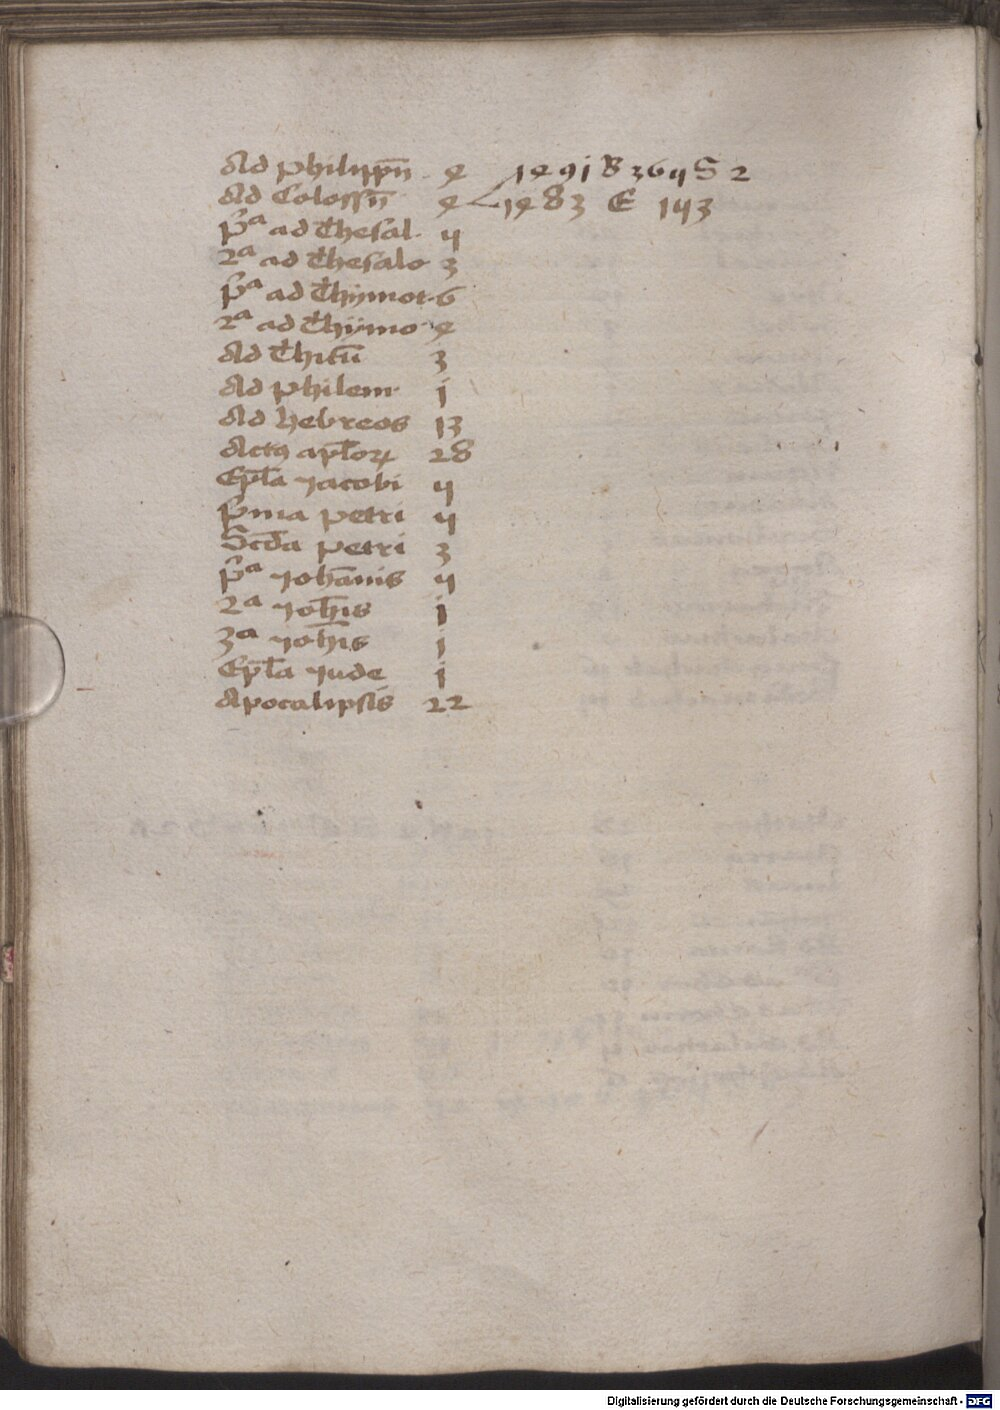 Ad philippn̄ 4 1491 B 3645 S 2
Ad Colossn̄ 4 1483 E 153
pᵃ ad Thesal. 5
2ᵃ ad Thesalo 3
pᵃ ad Thymot. 6
2ᵃ ad Thÿmo 4
Ad Thitū 3
Ad philem. 1
Ad hebreos 13
Actꝰ apl̄oꝝ 28
Epl̄a Jacobi 5
p̄ma petri 5
Scd̄a petri 3
pᵃ Joha̅nis 5
2ᵃ Joh̄is 1
3ᵃ Joh̄is 1
Epl̄a Jude 1
Apocalipsis 22
Digitalisierung gefördert durch die Deutsche Forschungsgemeinschaft - DFG